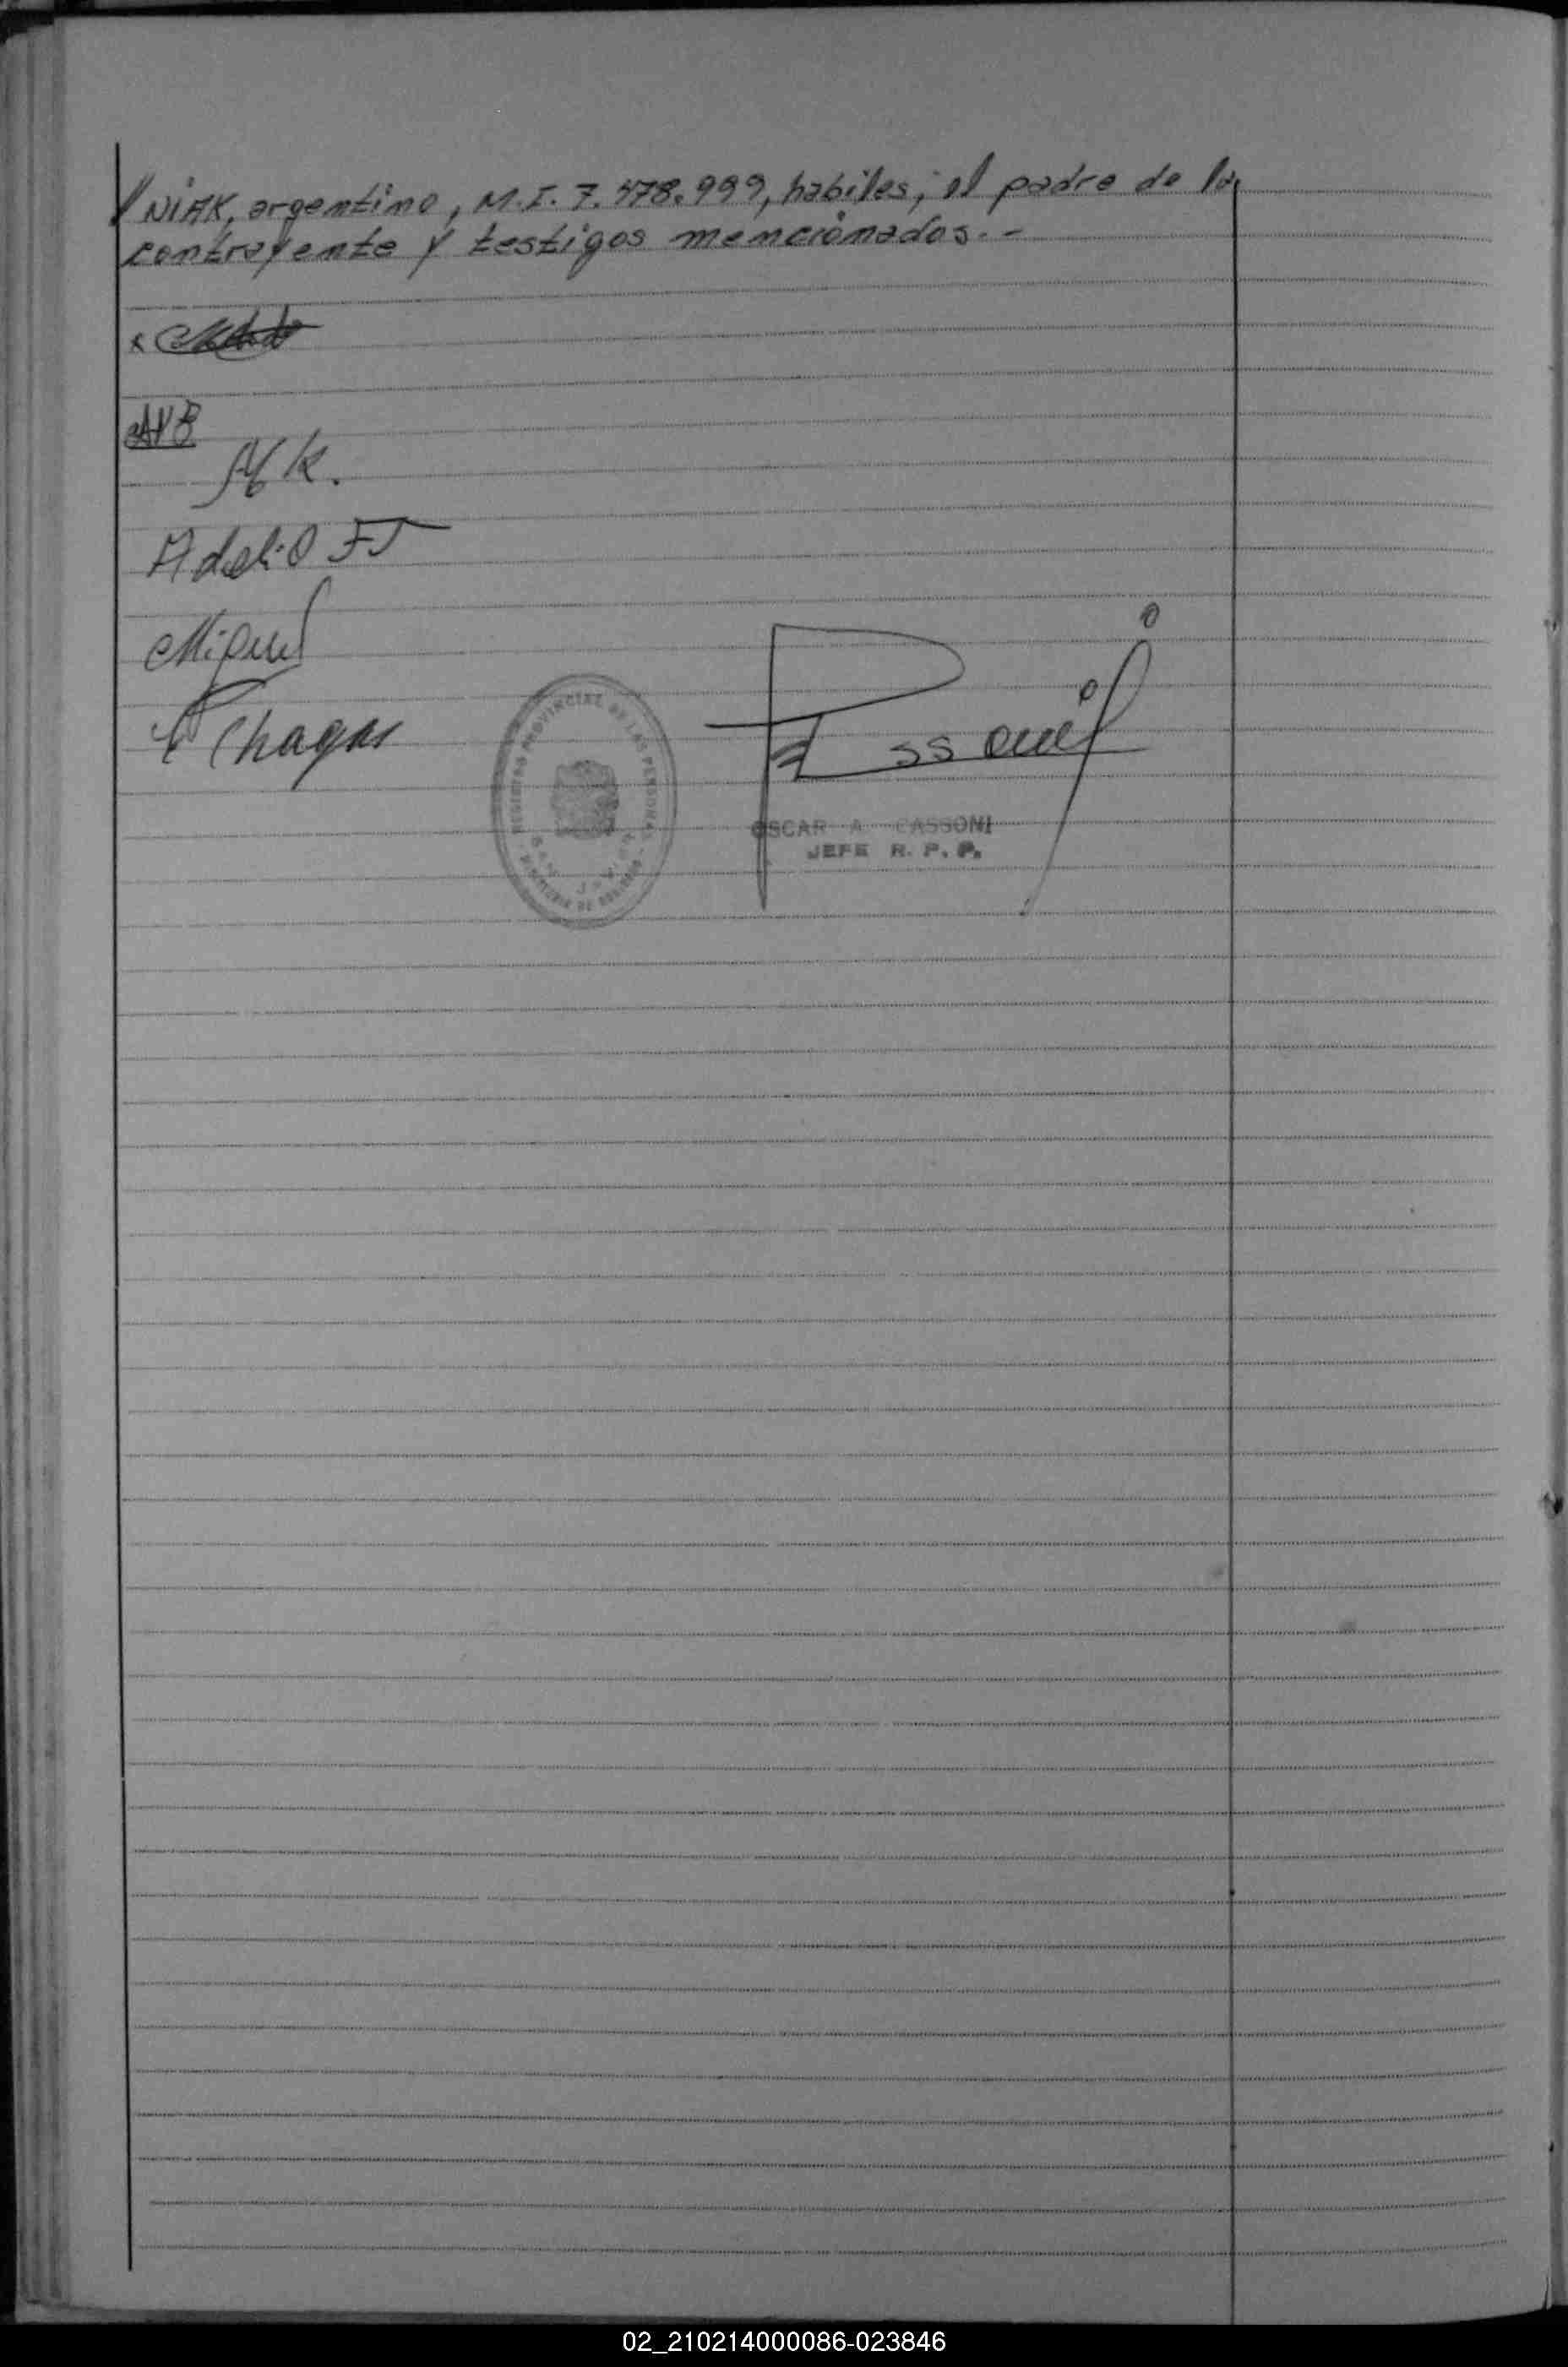 NIAK, argentino, M.I. 7.478.999, habiles; el padre de la
contrayente y testigos mencionados.-
AVB
Adelio
Miguel
Chagas
REGISTRO PROVINCIAL DE LAS PERSONAS
OSCAR A. CASSONI
JEFE R. P. P.
02_210214000086-023846